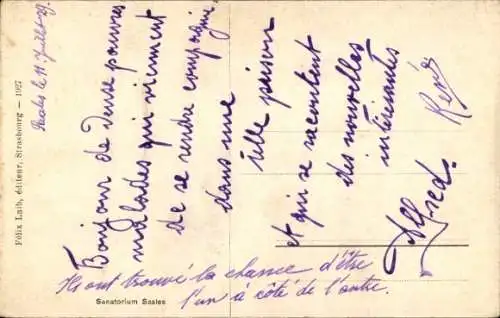 Saales le 11 Juillet 29
Bonjour de deux pauvres
malades qui viennent
de se rendre compagnie
dans une
ille prison
et qui se racontent
des nouvelles
intérisantes
Alfred. René
Ils ont trouvé la chance d'être
l'un à côté de l'autre.
Sanatorium Saales
Félix Luib, éditeur, Strasbourg — 1927